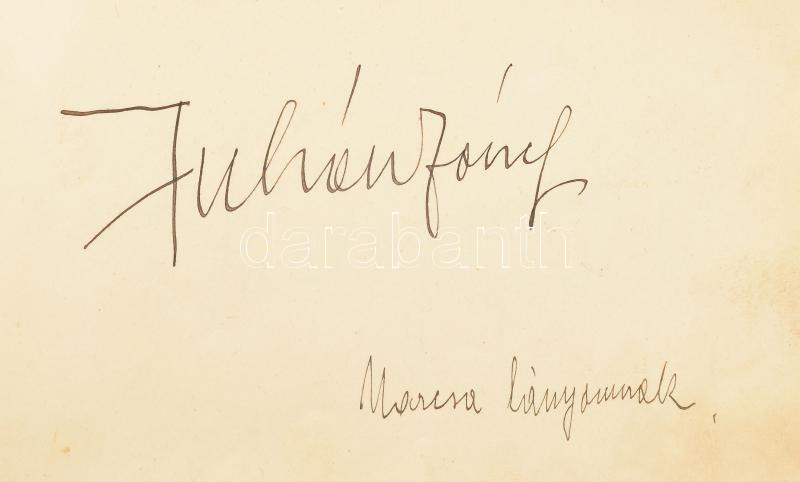 Juhász József
darabanth
Marcsa lányomnak